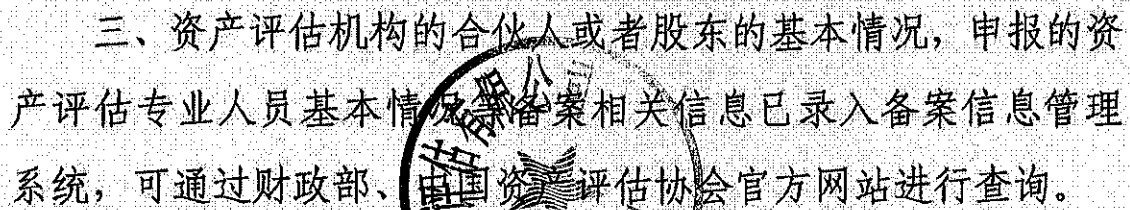 三、资产评估机构的合伙人或者股东的基本情况，申报的资
产评估专业人员基本情况等备案相关信息已录入备案信息管理
系统，可通过财政部、中国资产评估协会官方网站进行查询。